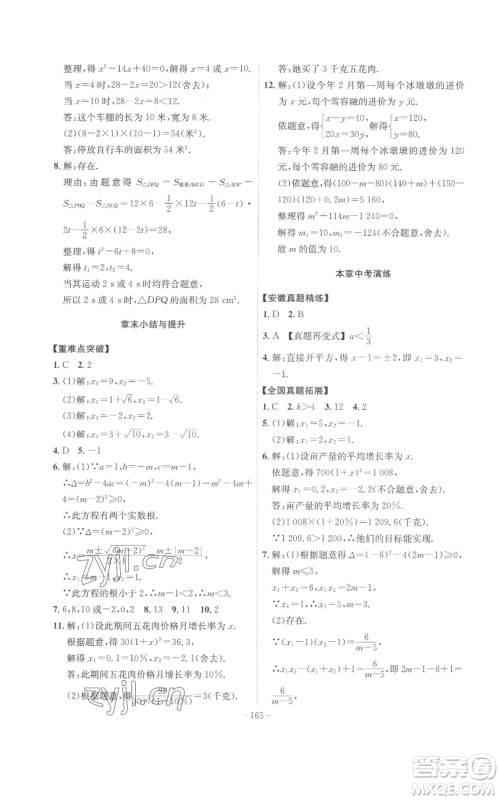 整理,得 x²-14x+40=0.解得 x₁=4,x₂=10.
当 x=4 时,28-2x=20>12(舍去);
当 x=10 时,28-2x=8<12.
答:这个车棚的长为 10 米,宽为 8 米.
(2)(8-2×1)×(10-1)=54(米²).
答:停放自行车的面积是 54 米².
8. 解:存在.
理由:由题意得 S△DPQ=S矩形ABCD-S△ADP-
S△PBQ-S△DCQ=12×6-1/2×12t-1/2(6-t)·
2t-1/2×6×(12-2t)=28,
即 t²-6t+8=0.
解得 t₁=2,t₂=4.
当其运动 2 s 或 4 s 时均符合题意,
所以 2 s 或 4 s 时,△DPQ 的面积为 28 cm².
章末小结与提升
【重难点突破】
1. C 2. 2
3. (1)解:x₁=9,x₂=-5.
(2)解:x₁=1+√6,x₂=1-√6.
(3)解:x₁=-2,x₂=2.
(4)解:x₁=3+√10,x₂=3-√10.
4. D 5. -1
6. 解:(1)∵a=1,b=-m,c=m-1,
∴Δ=b²-4ac=(-m)²-4(m-1)=m²-4m+
4=(m-2)²≥0,
∴此方程有两个实数根.
(2)∵Δ=(m-2)²≥0,
7. 6,8,10或-2,0,2 8. 13 9. 11 10. 2
11. 解:(1)设此期间五花肉价格月增长率为 x.
根据题意,得 30(1+x)²=36.3,
解得 x₁=0.1=10%,x₂=-2.1(舍去).
答:此期间五花肉价格月增长率为 10%.
答:她买了 3 千克五花肉.
12. 解:(1)设今年 2 月第一周每个冰墩墩的进价
为 x 元,每个雪容融的进价为 y 元.
依题意,得{x-y=40, 20x=30y,解得{x=120, y=80.
答:今年 2 月第一周每个冰墩墩的进价为
120 元,每个雪容融的进价为 80 元.
=5 160,
解得 m₁=10,m₂=0(舍去).
故 m 的值为 10.
本章中考演练
【安徽真题精练】
1. D 2. B
3. A 【真题再变式】a<1/3
4. 解:直接开平方,得 x-1=±2,∴x=3 或 x=
-1.
【全国真题拓展】
1. C 2. b>4 3. 12 4. 2
5. 解:(1)x₁=5,x₂=-1.
6. 解:(1)设亩产量的平均增长率为 x.
依题意,得 700(1+x)²=1 008,
解得 x₁=0.2=20%,x₂=-2.2(舍去).
答:亩产量的平均增长率为 20%.
(2)1 008×(1+20%)=1 209.6(千克).
∵1 209.6>1 200,∴他们的目标能实现.
7. 解:(1)根据题意,得 Δ=(-6)²-4(2m-1)≥0,
解得 m≤5.
x₁+x₂=6,x₁x₂=2m-1,
(2)存在.
∵(x₁-1)(x₂-1)=6/(m-5),
∴x₁x₂-(x₁+x₂)+1=6/(m-5),即 2m-1-6+1=
6/(m-5),
- 165 -